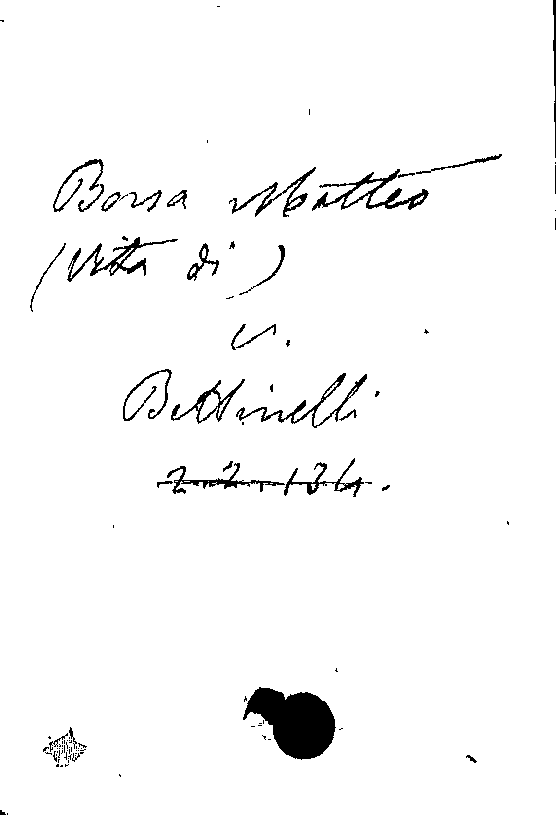 Borsa Matteo
(Vita di)
v.
Bettinelli
2.2.134.